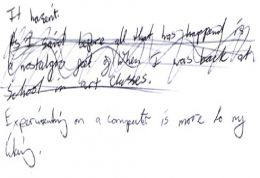 It hasn't.
As I said before all that has happened is
a nostalgic pat of when I was back at
School in art classes.
Experimenting on a computer is more to my
liking.